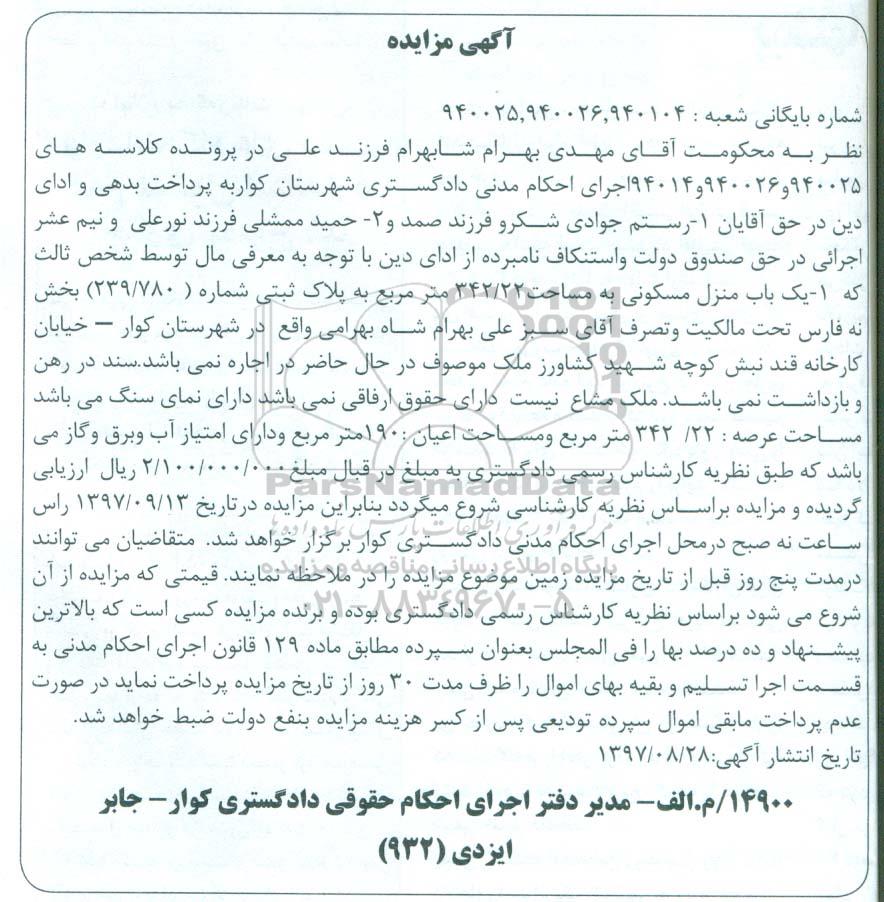 آگهی مزایده
شماره بایگانی شعبه : ۹۴۰۰۲۵,۹۴۰۰۲۶,۹۴۰۱۰۴
نظر به محکومت آقای مهدی بهرام شابهرام فرزند علی در پرونده کلاسه های
۹۴۰۰۲۵و۹۴۰۰۲۶و۹۴۰۱۴اجرای احکام مدنی دادگستری شهرستان کواربه پرداخت بدهی و ادای
دین در حق آقایان ۱-رستم جوادی شکرو فرزند صمد و۲- حمید ممشلی فرزند نورعلی و نیم عشر
اجرائی در حق صندوق دولت واستنکاف نامبرده از ادای دین با توجه به معرفی مال توسط شخص ثالث
که ۱-یک باب منزل مسکونی به مساحت۳۴۲/۲۲ متر مربع به پلاک ثبتی شماره ( ۲۳۹/۷۸۰) بخش
نه فارس تحت مالکیت وتصرف آقای سبز علی بهرام شاه بهرامی واقع در شهرستان کوار – خیابان
کارخانه قند نبش کوچه شهید کشاورز ملک موصوف در حال حاضر در اجاره نمی باشد.سند در رهن
و بازداشت نمی باشد. ملک مشاع نیست دارای حقوق ارفاقی نمی باشد دارای نمای سنگ می باشد
مساحت عرصه : ۲۲/ ۳۴۲ متر مربع ومساحت اعیان :۱۹۰متر مربع ودارای امتیاز آب وبرق وگاز می
باشد که طبق نظریه کارشناس رسمی دادگستری به مبلغ در قبال مبلغ۲/۱۰۰/۰۰۰/۰۰۰ ریال ارزیابی
گردیده و مزایده براساس نظریه کارشناسی شروع میگردد بنابراین مزایده درتاریخ ۱۳۹۷/۰۹/۱۳ راس
ساعت نه صبح درمحل اجرای احکام مدنی دادگستری کوار برگزار خواهد شد. متقاضیان می توانند
درمدت پنج روز قبل از تاریخ مزایده زمین موضوع مزایده را در ملاحظه نمایند. قیمتی که مزایده از آن
شروع می شود براساس نظریه کارشناس رسمی دادگستری بوده و برنده مزایده کسی است که بالاترین
پیشنهاد و ده درصد بها را فی المجلس بعنوان سپرده مطابق ماده ۱۲۹ قانون اجرای احکام مدنی به
قسمت اجرا تسلیم و بقیه بهای اموال را ظرف مدت ۳۰ روز از تاریخ مزایده پرداخت نماید در صورت
عدم پرداخت مابقی اموال سپرده تودیعی پس از کسر هزینه مزایده بنفع دولت ضبط خواهد شد.
تاریخ انتشار آگهی:۱۳۹۷/۰۸/۲۸
۱۴۹۰۰/م.الف- مدیر دفتر اجرای احکام حقوقی دادگستری کوار- جابر
ایزدی (۹۳۲)
ParsNamadData
مرکز فرآوری اطلاعات پارس نماد داده ها
پایگاه اطلاع رسانی مناقصه و مزایده
۰۲۱-۸۸۳۴۹۶۷۰-۵